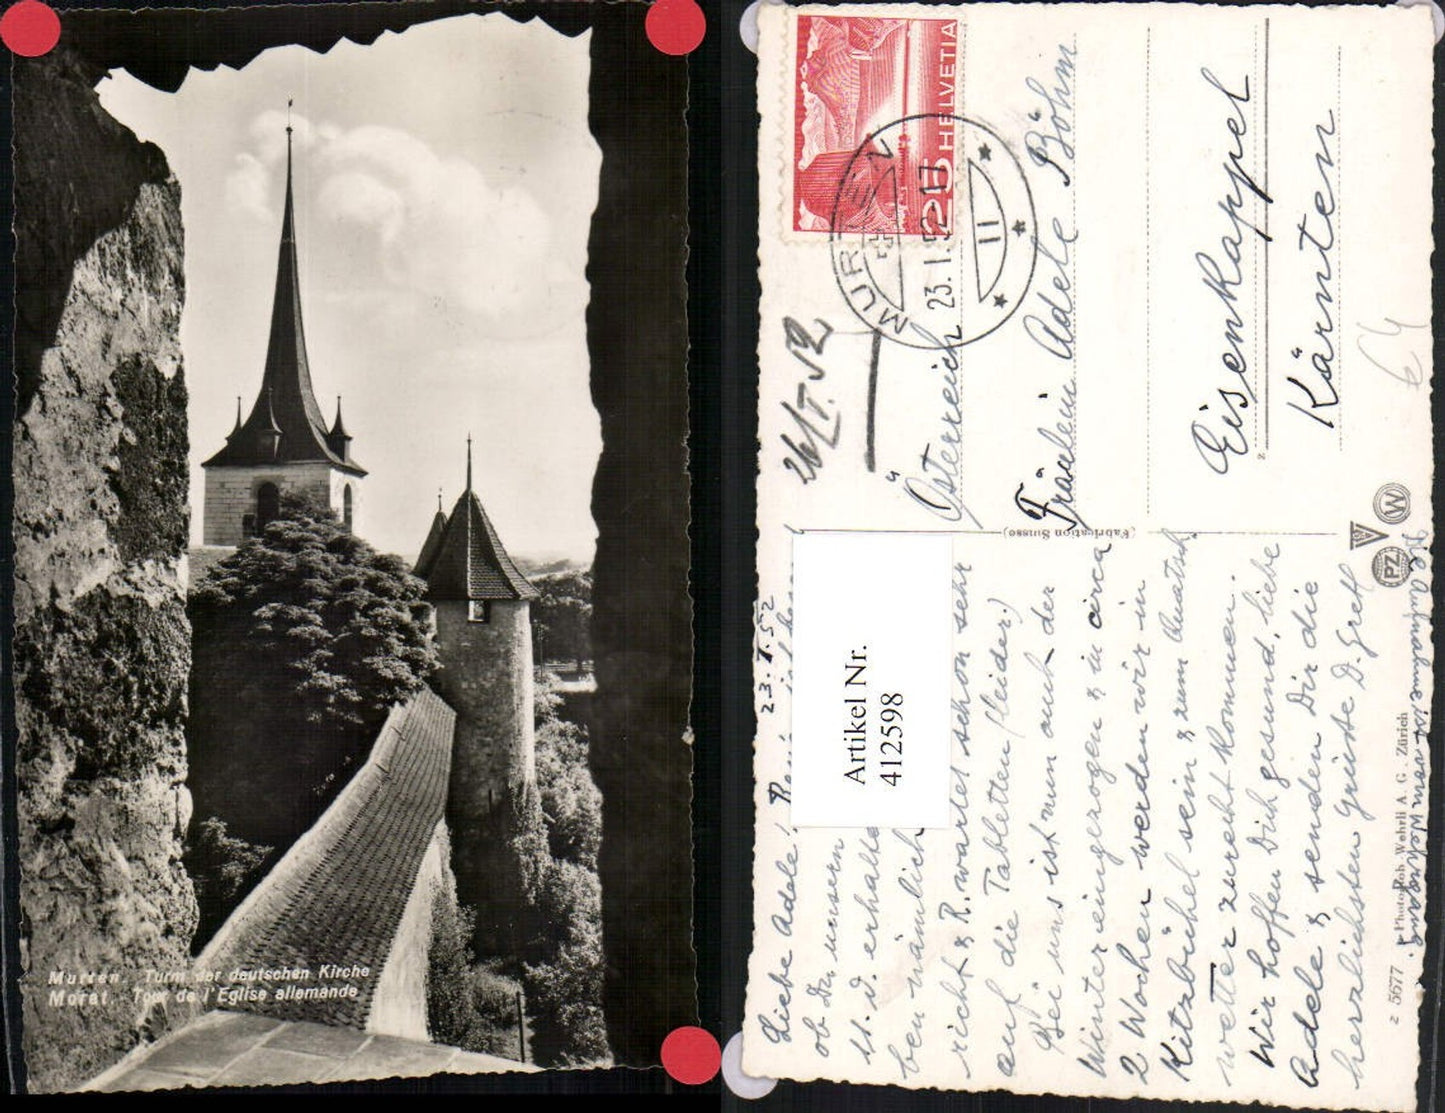 Murten. Turm der deutschen Kirche
Morat. Tour de l'Eglise allemande
HELVETIA
25
MURTEN
23.I.52-17
11
26/I.52
Österreich
Fräulein Adele Böhm
Eisenkappel
Kärnten
z
64
(Fabrication Suisse)
Artikel Nr.
412598
23.I.52
Liebe Adele!
ob Du unsern
11. d. erhalte
ben nämlich
richt & R. wartet schon sehr
auf die Tabletten (leider!)
Bei uns ist nun auch der
Winter eingezogen & in circa
2 Wochen werden wir in
Kitzbühel sein & zum
wetter zurecht kommen.
Wir hoffen Dich gesund, liebe
Adele & senden Dir die
herzlichsten Grüsse D. Gretl
Die Aufnahme ist vom Wehrgang.
W
PZ
z 5677 Photoglob-Wehrli A. G., Zürich